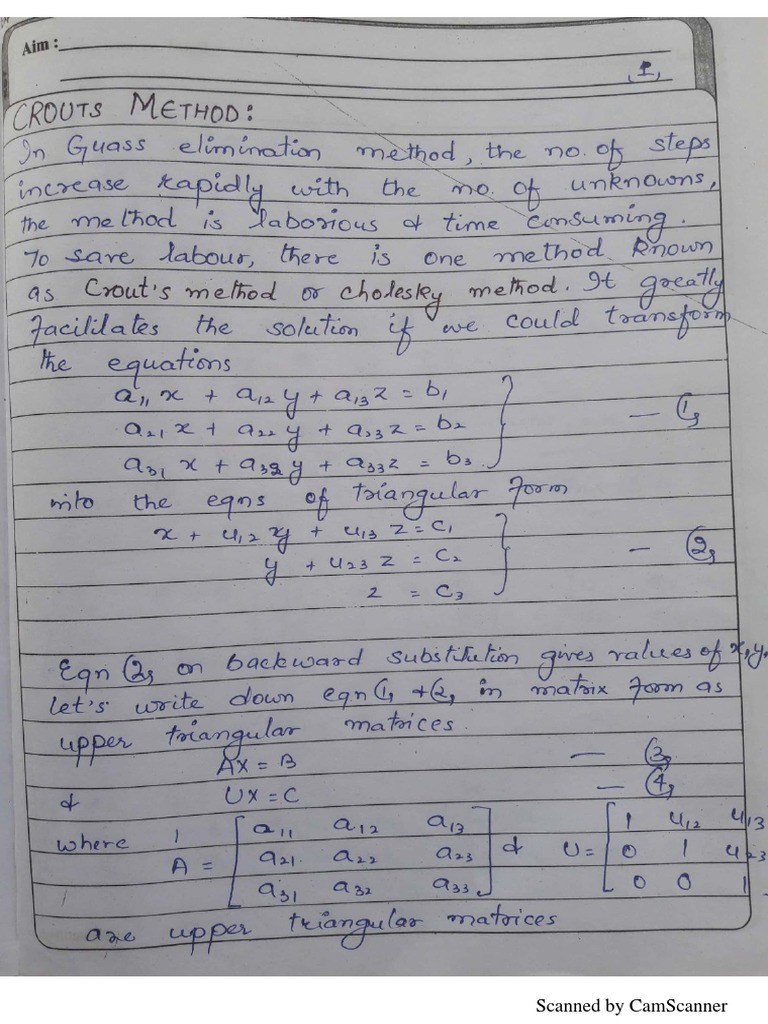 Aim :
1,
CROUTS METHOD:
In Guass elimination method, the no. of steps
increase rapidly with the no. of unknowns,
the method is laborious & time consuming.
To save labour, there is one method known
as Crout's method or cholesky method. It greatly
facililates the solution if we could transform
the equations
a11 x + a12 y + a13 z = b1
a21 x + a22 y + a23 z = b2 — (1)
a31 x + a32 y + a33 z = b3
into the eqns of triangular form
x + u12 y + u13 z = c1
y + u23 z = c2 — (2)
z = c3
Eqn (2) on backward substitution gives values of x, y,
let's write down eqn (1) & (2) in matrix form as
upper triangular matrices.
AX = B — (3)
& UX = C — (4)
where A = [a11 a12 a13 & U = [1 u12 u13
a21 a22 a23 0 1 u23
a31 a32 a33] 0 0 1
are upper triangular matrices
Scanned by CamScanner